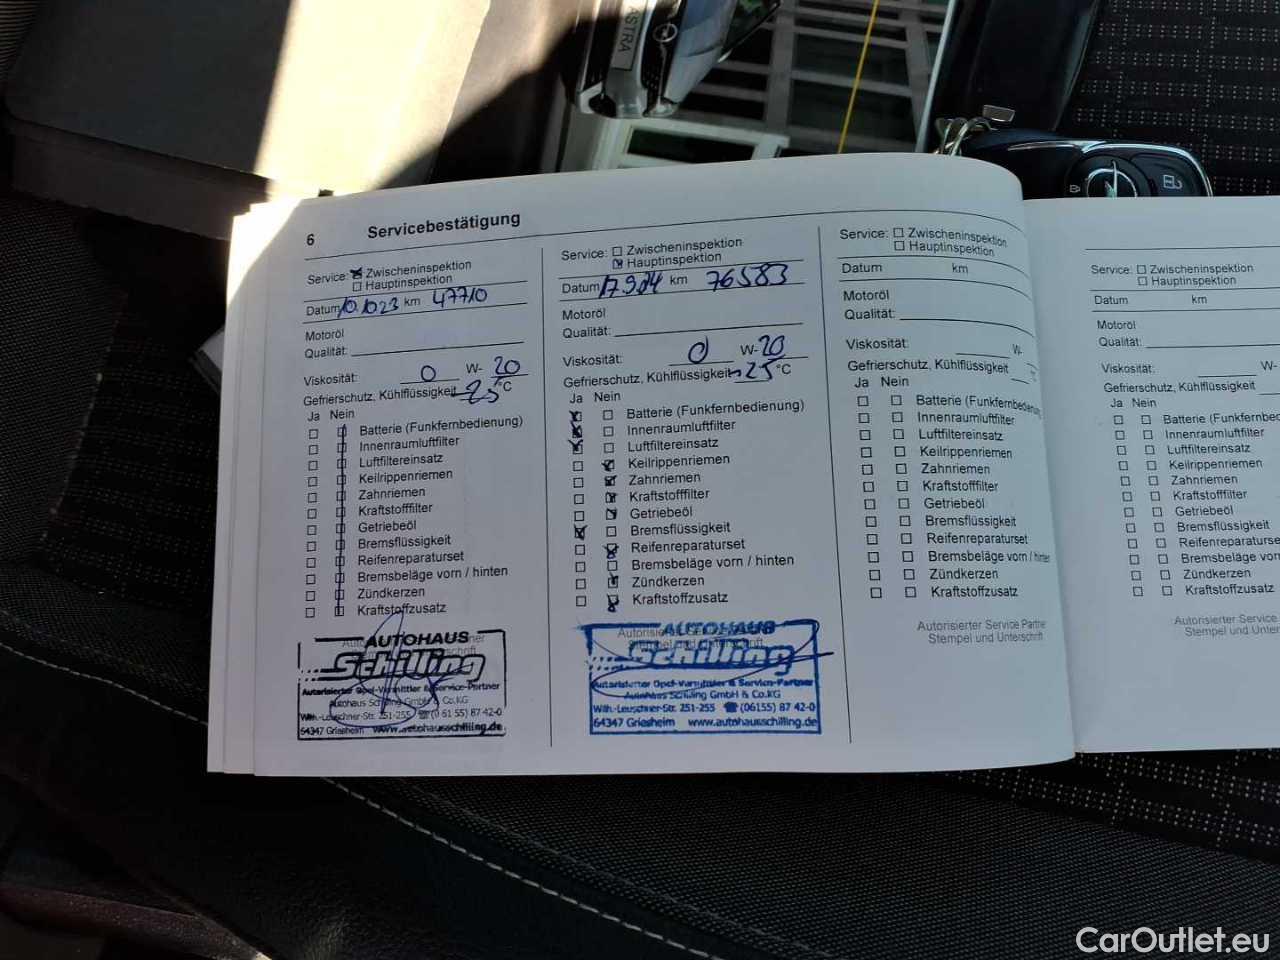 ASTRA
6 Servicebestätigung
Service: Zwischeninspektion
Hauptinspektion
Datum 10.10.23 km 47710
Motoröl
Qualität:
Viskosität: 0 W- 20
Gefrierschutz, Kühlflüssigkeit -25 °C
Ja Nein
Batterie (Funkfernbedienung)
Innenraumluftfilter
Luftfiltereinsatz
Keilrippenriemen
Zahnriemen
Kraftstofffilter
Getriebeöl
Bremsflüssigkeit
Reifenreparaturset
Bremsbeläge vorn / hinten
Zündkerzen
Kraftstoffzusatz
AUTOHAUS
Schilling
Autorisierter Opel-Vermittler & Service-Partner
Autohaus Schilling GmbH & Co.KG
Wilh.-Leuschner-Str. 251-255 ☎ (0 61 55) 87 42-0
64347 Griesheim www.autohausschilling.de
Service: Zwischeninspektion
Hauptinspektion
Datum 17.9.24 km 76583
Motoröl
Qualität:
Viskosität: 0 W- 20
Gefrierschutz, Kühlflüssigkeit -25 °C
Ja Nein
Batterie (Funkfernbedienung)
Innenraumluftfilter
Luftfiltereinsatz
Keilrippenriemen
Zahnriemen
Kraftstofffilter
Getriebeöl
Bremsflüssigkeit
Reifenreparaturset
Bremsbeläge vorn / hinten
Zündkerzen
Kraftstoffzusatz
AUTOHAUS
Schilling
Autorisierter Opel-Vermittler & Service-Partner
Autohaus Schilling GmbH & Co.KG
Wilh.-Leuschner-Str. 251-255 ☎ (06155) 87 42-0
64347 Griesheim www.autohausschilling.de
Service: Zwischeninspektion
Hauptinspektion
Datum km
Motoröl
Qualität:
Viskosität: W-
Gefrierschutz, Kühlflüssigkeit
Ja Nein
Batterie (Funkfernbedienung
Innenraumluftfilter
Luftfiltereinsatz
Keilrippenriemen
Zahnriemen
Kraftstofffilter
Getriebeöl
Bremsflüssigkeit
Reifenreparaturset
Bremsbeläge vorn / hinten
Zündkerzen
Kraftstoffzusatz
Autorisierter Service Partne
Stempel und Unterschrift
Service: Zwischeninspektion
Hauptinspektion
Datum km
Motoröl
Qualität:
Viskosität: W-
Gefrierschutz, Kühlflüssigkeit
Ja Nein
Batterie (Funkfernbe
Innenraumluftfilter
Luftfiltereinsatz
Keilrippenriemen
Zahnriemen
Kraftstofffilter
Getriebeöl
Bremsflüssigkeit
Reifenreparaturse
Bremsbeläge vorn
Zündkerzen
Kraftstoffzusatz
Autorisierter Service
Stempel und Unter
CarOutlet.eu